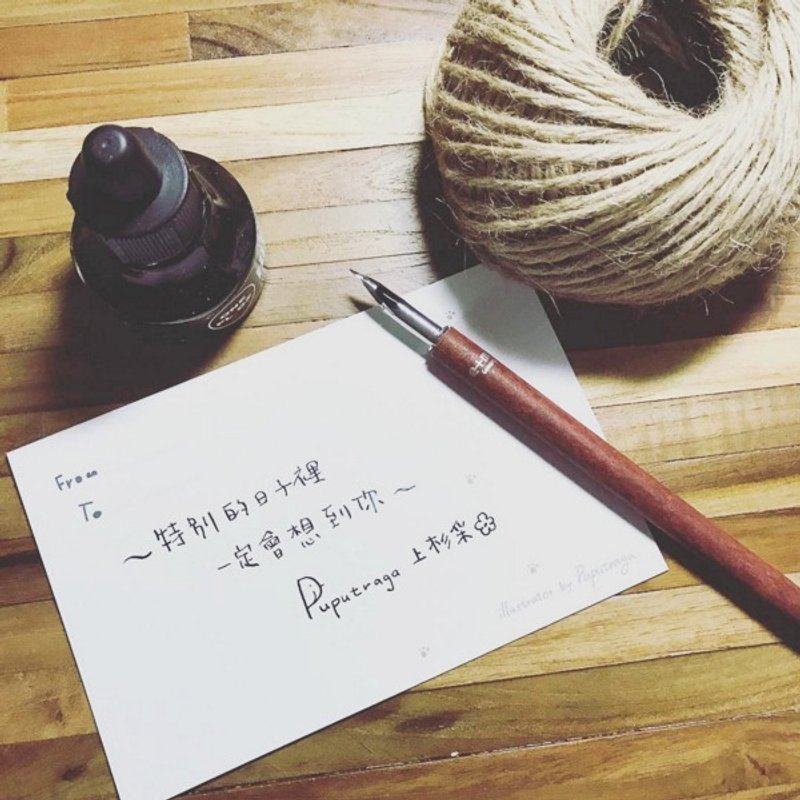 From
To
～特別的日子裡
一定會想到你～
Puputraga 上杉朵
illustrator by Puputraga